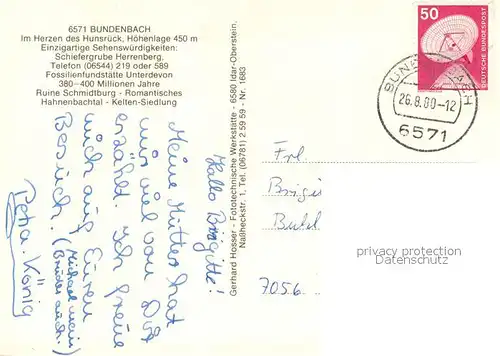 6571 BUNDENBACH
Im Herzen des Hunsrück, Höhenlage 450 m
Einzigartige Sehenswürdigkeiten:
Schiefergrube Herrenberg.
Telefon (06544) 219 oder 589
Fossilienfundstätte Unterdevon
380–400 Millionen Jahre
Ruine Schmidtburg - Romantisches
Hahnenbachtal - Kelten-Siedlung
Gerhard Hosser - Fototechnische Werkstätte - 6580 Idar-Oberstein.
Naßheckstr. 1, Tel. (06781) 2 59 59 - Nr. 1683
50
DEUTSCHE BUNDESPOST
26.8.80-12
6571
Hallo Brigitte!
Meine Mutter hat
mir viel von Dir
erzählt. Ich freue
mich auf Euren
Besuch. (Michael mein
Bruder auch.)
Petra König
Frl.
Brigi
7056
privacy protection
Datenschutz